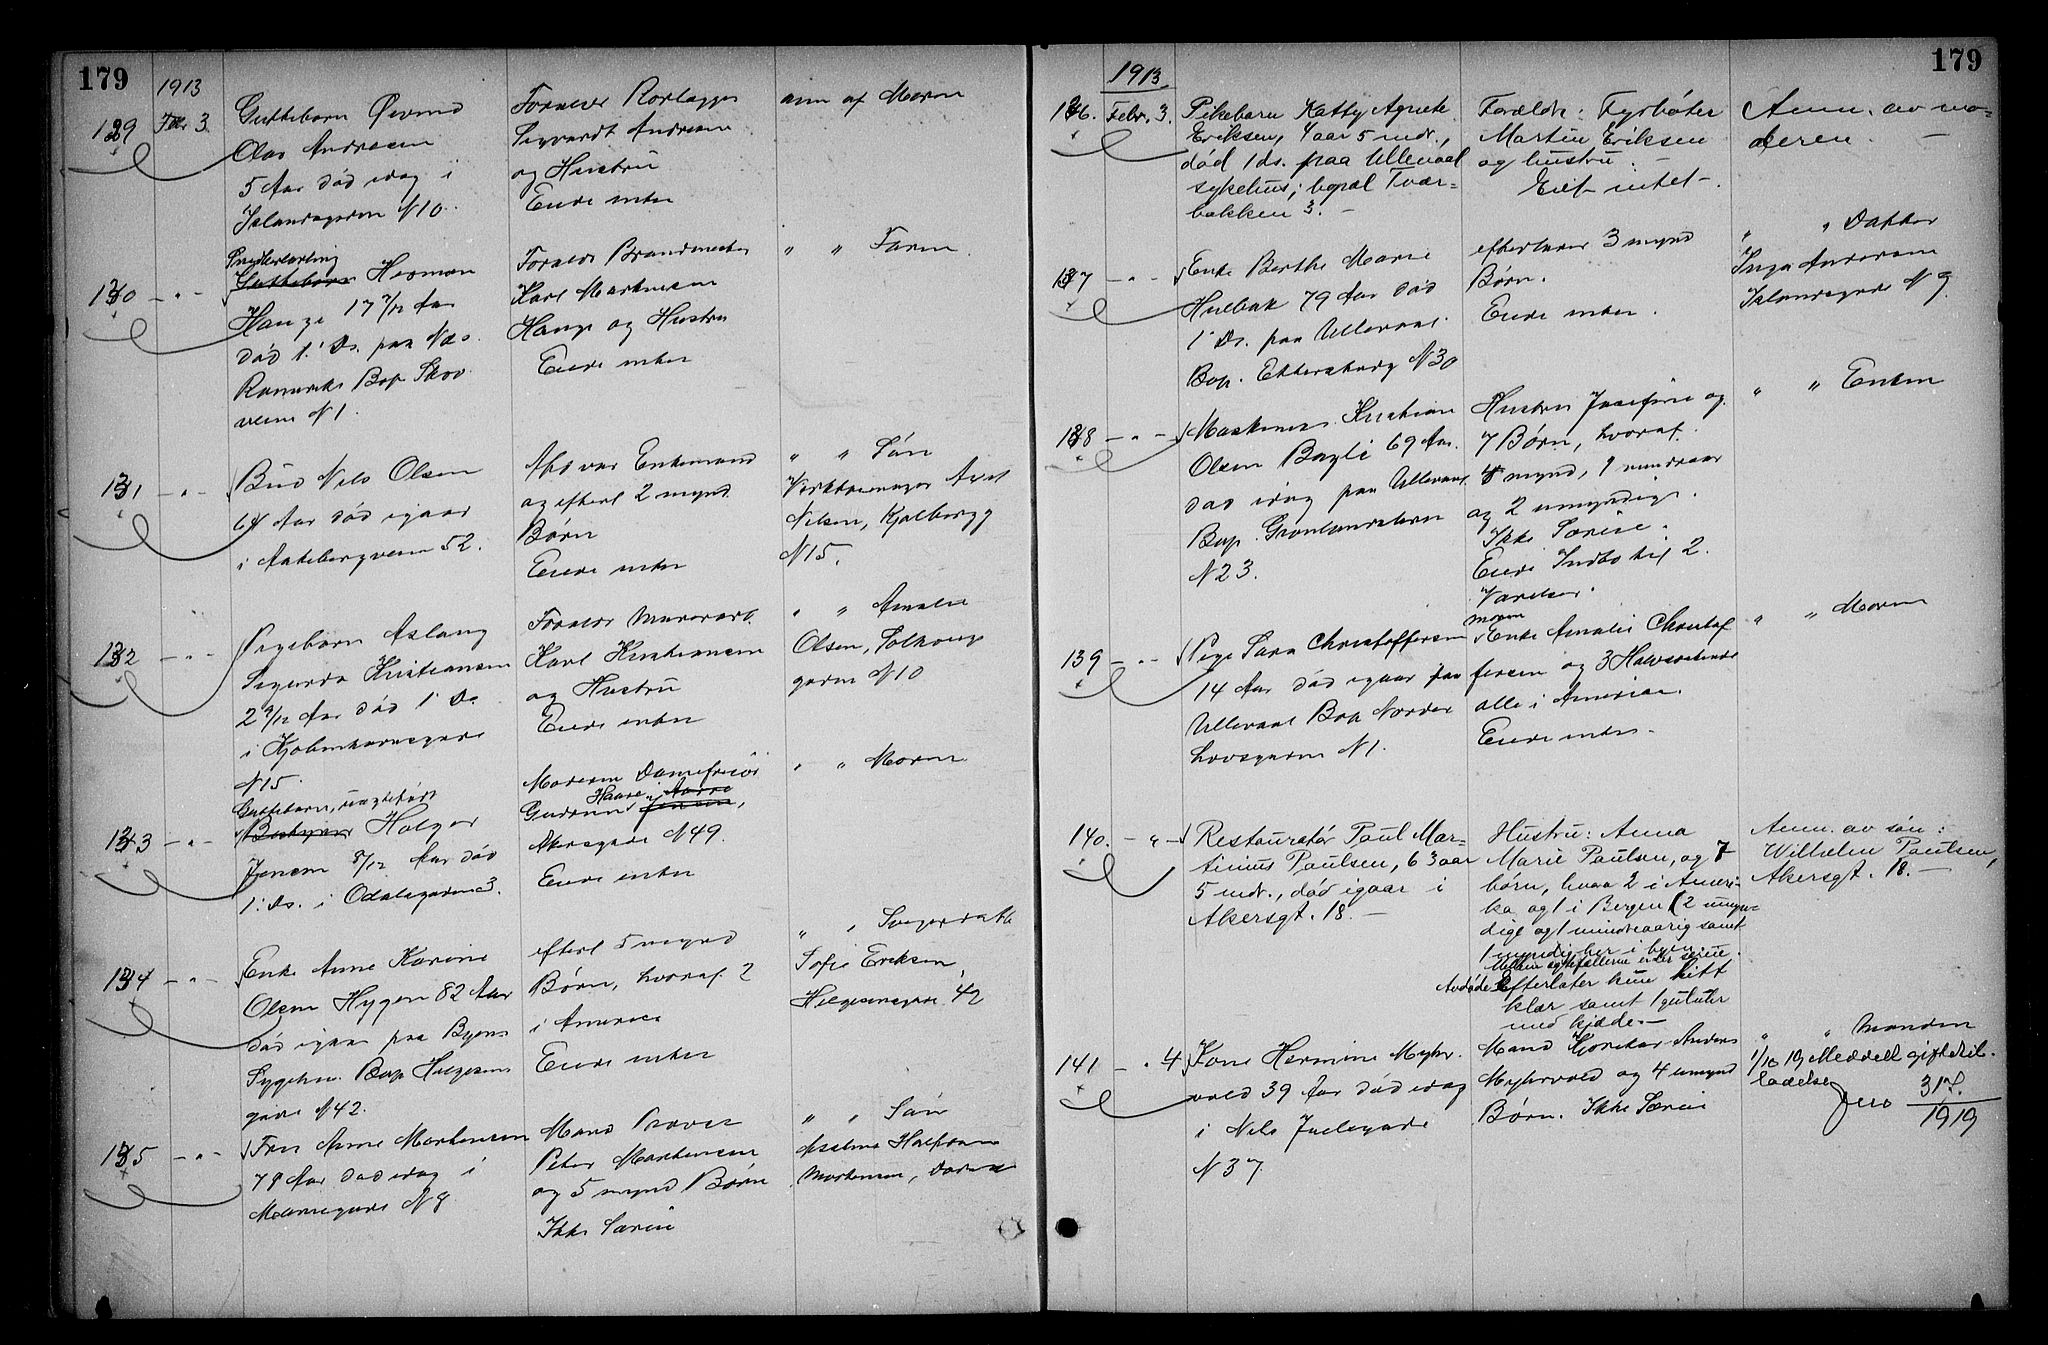 179
1913
129 Febr 3.
Guttebarn Øivind
Olav Andresen
5 Aar død idag i
Islandsgaden N 10.
Forældr Rørlægger
Sigvardt Andresen
og Hustru
Eiede intet
anm af Moren
130 - " -
Snedkerlærling
Guttebarn Herman
Hauge 17 7/12 Aar
død 1. Ds. paa Ndo.
Romerike Bop Skov
veien N 1.
Forældr Brandmester
Karl Martinsen
Hauge og Hustru
Eiede intet
" " Faren
131 - " -
Bud Nils Olsen
64 Aar død igaar
i Aakebergveien 52.
Afd var Enkemand
og efterl 2 mynd
Børn
Eiede intet
" " Søn
Axel
Nilsen, Kjølbergg
N 15.
132 - " -
Pigebarn Aslaug
Sigurda Kristiansen
2 9/12 Aar død 1 Ds.
i Kjøbenhavnsgade
N 15.
Forældr Murerarb.
Karl Kristiansen
og Hustru
Eiede intet
" " Amalie
Olsen, Solhaug
gaden N 10
133 - " -
Guttebarn, uægtefødt
Bestyrer Holger
Jensen 8/12 Aar død
1. Ds. i Odalsgaden 3.
Moderen Damefrisør
Haare
Gudrun Jensen,
Akersgade N 49.
Eiede intet
" " Moren
134 - " -
Enke Anne Karine
Olsen Hygen 82 Aar
død igaar paa Byens
Sygehus. Bop Helgesens
gade N 42.
efterl 5 mynd
Børn, hvoraf 2
i Amerika
Eiede intet
" " Svigerdatt
Sofie Eriksen,
Helgesensgade 42
135 - " -
Fru Anne Mortensen
78 Aar død idag i
N 8
Mand Graver
Peter Mortensen
og 5 mynd Børn
Ikke Særeie
" " Søn
Anselmo Halfdan
Mortensen,
179
1913
136. Febr. 3.
Pikebarn Kathy Agnete
Eriksen, 4 aar 5 mdr.,
død 1 ds. paa Ullevaal
sykehus; bopæl Tvær-
bakken 3. -
Forældr: Fyrbøter
Martin Eriksen
og hustru. -
Eiet intet -.
Anm. av mo-
deren. -
137 - " -
Enke Berthe Marie
Hulbak 79 Aar død
1 Ds. paa Ullevaal.
Bop. Ekebergsborg N 30
efterlater 3 mynd
Børn.
Eiede intet.
" " Datter
Inga Andersen
Islandsgade N 9.
138 - " -
Maskinm. Kristian
Olsen Bagli 69 Aar.
død idag paa Ullevaal
Bop. Grønlandsleret
N 23.
Hustru Josefine og
7 Børn, hvoraf
4 mynd, 1 mindreaar
og 2 umyndige.
Ikke Særeie.
Eiede Indbo til 2
Værelser.
" " Enken
139 - " -
Pige Sara Christoffersen
14 Aar død igaar paa
Ullevaal Bop Nordre
hovsgaden N 1.
moren
Enke Amalie Christof
fersen og 3 Halvsøskende
alle i Amerika.
Eiede intet -
" " Moren
140. - " -
Restauratør Paul Mar-
tinius Paulsen, 63 aar
5 mdr., død igaar i
Akersgt. 18. -
Hustru: Anna
Marie Paulsen, og 7
børn, hvoraf 2 i Ameri-
ka og 1 i Bergen (2 umyn-
dige og 1 mindreaarig samt
1 myndig her i byen.
Mellem ægtefællerne er der særeie.
Avdøde efterlater kun litt
klær samt 1 guldur
med kjæde. -
Anm. av søn:
Wilhelm Paulsen,
Akersgt. 18. -
141 - " 4
Kone Hermine Myhr
vold 39 Aar død idag
i Nils Juelsgade
N 37.
Mand Kjørekar Anders
Myhrvold og 4 umynd
Børn. Ikke Særeie
" " Manden
1/10 19 Meddelt giftetil-
ladelse
317
1919